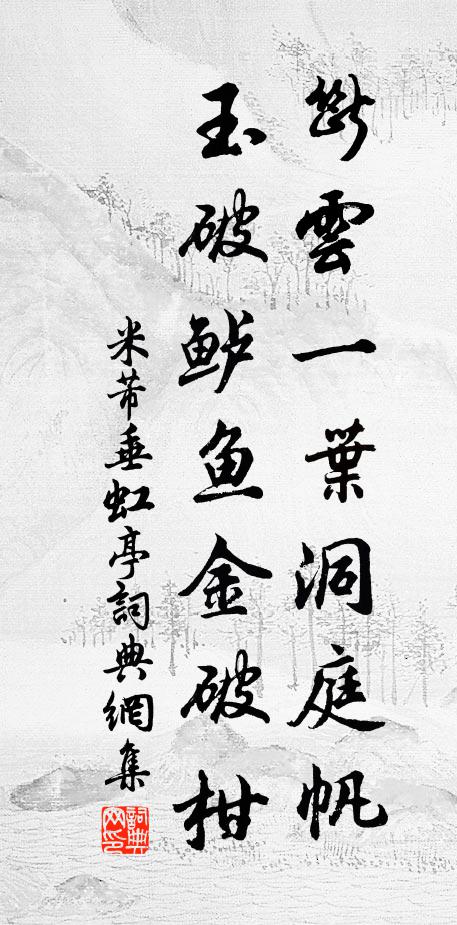 斷雲一葉洞庭帆
玉破鲈鱼金破柑
米芾垂虹亭詞典網集
詞典网印